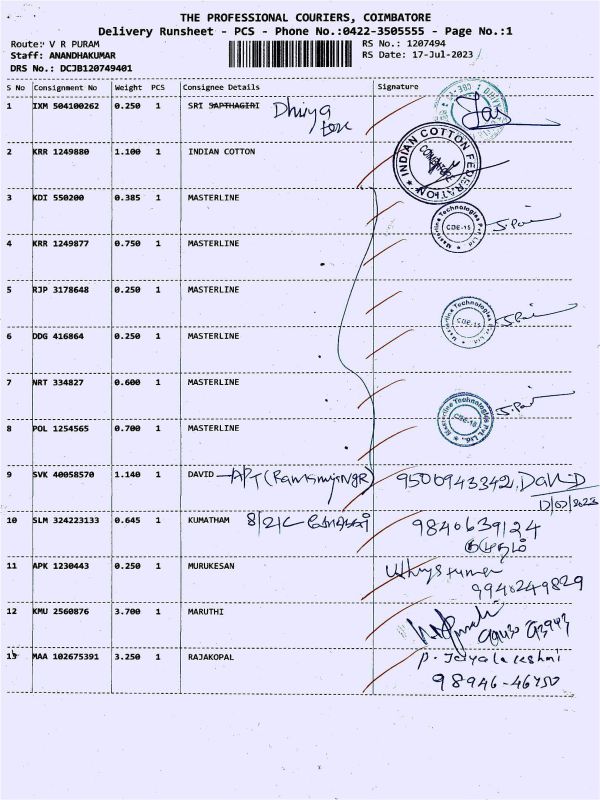 THE PROFESSIONAL COURIERS, COIMBATORE
Delivery Runsheet - PCS - Phone No.:0422-3505555 - Page No.:1
Route: V R PURAM
RS No.: 1207494
Staff: ANANDHAKUMAR
RS Date: 17-Jul-2023
DRS No.: DCJB120749401
S No Consignment No Weight PCS Consignee Details Signature
1 IXM 504100262 0.250 1 SRI SAPTHAGIRI Dhivya
2 KRR 1249880 1.100 1 INDIAN COTTON
INDIAN COTTON FEDERATION
COIMBATORE
3 KDI 550200 0.385 1 MASTERLINE
Masterline Technologies Pvt Ltd.
CDE-15
4 KRR 1249877 0.750 1 MASTERLINE
5 RJP 3178648 0.250 1 MASTERLINE
Masterline Technologies Pvt Ltd.
CDE-15
6 DDG 416864 0.250 1 MASTERLINE
7 NRT 334827 0.600 1 MASTERLINE
Masterline Technologies Pvt Ltd.
8 POL 1254565 0.700 1 MASTERLINE
9 SVK 40058570 1.140 1 DAVID 9500943342, David
17/07/2023
10 SLM 324223133 0.645 1 KUMATHAM 8/21C 9840639124
11 APK 1230443 0.250 1 MURUKESAN
9940249829
12 KMU 2560876 3.700 1 MARUTHI
13 MAA 102675391 3.250 1 RAJAKOPAL P. Jeyalakshmi
98946-46750